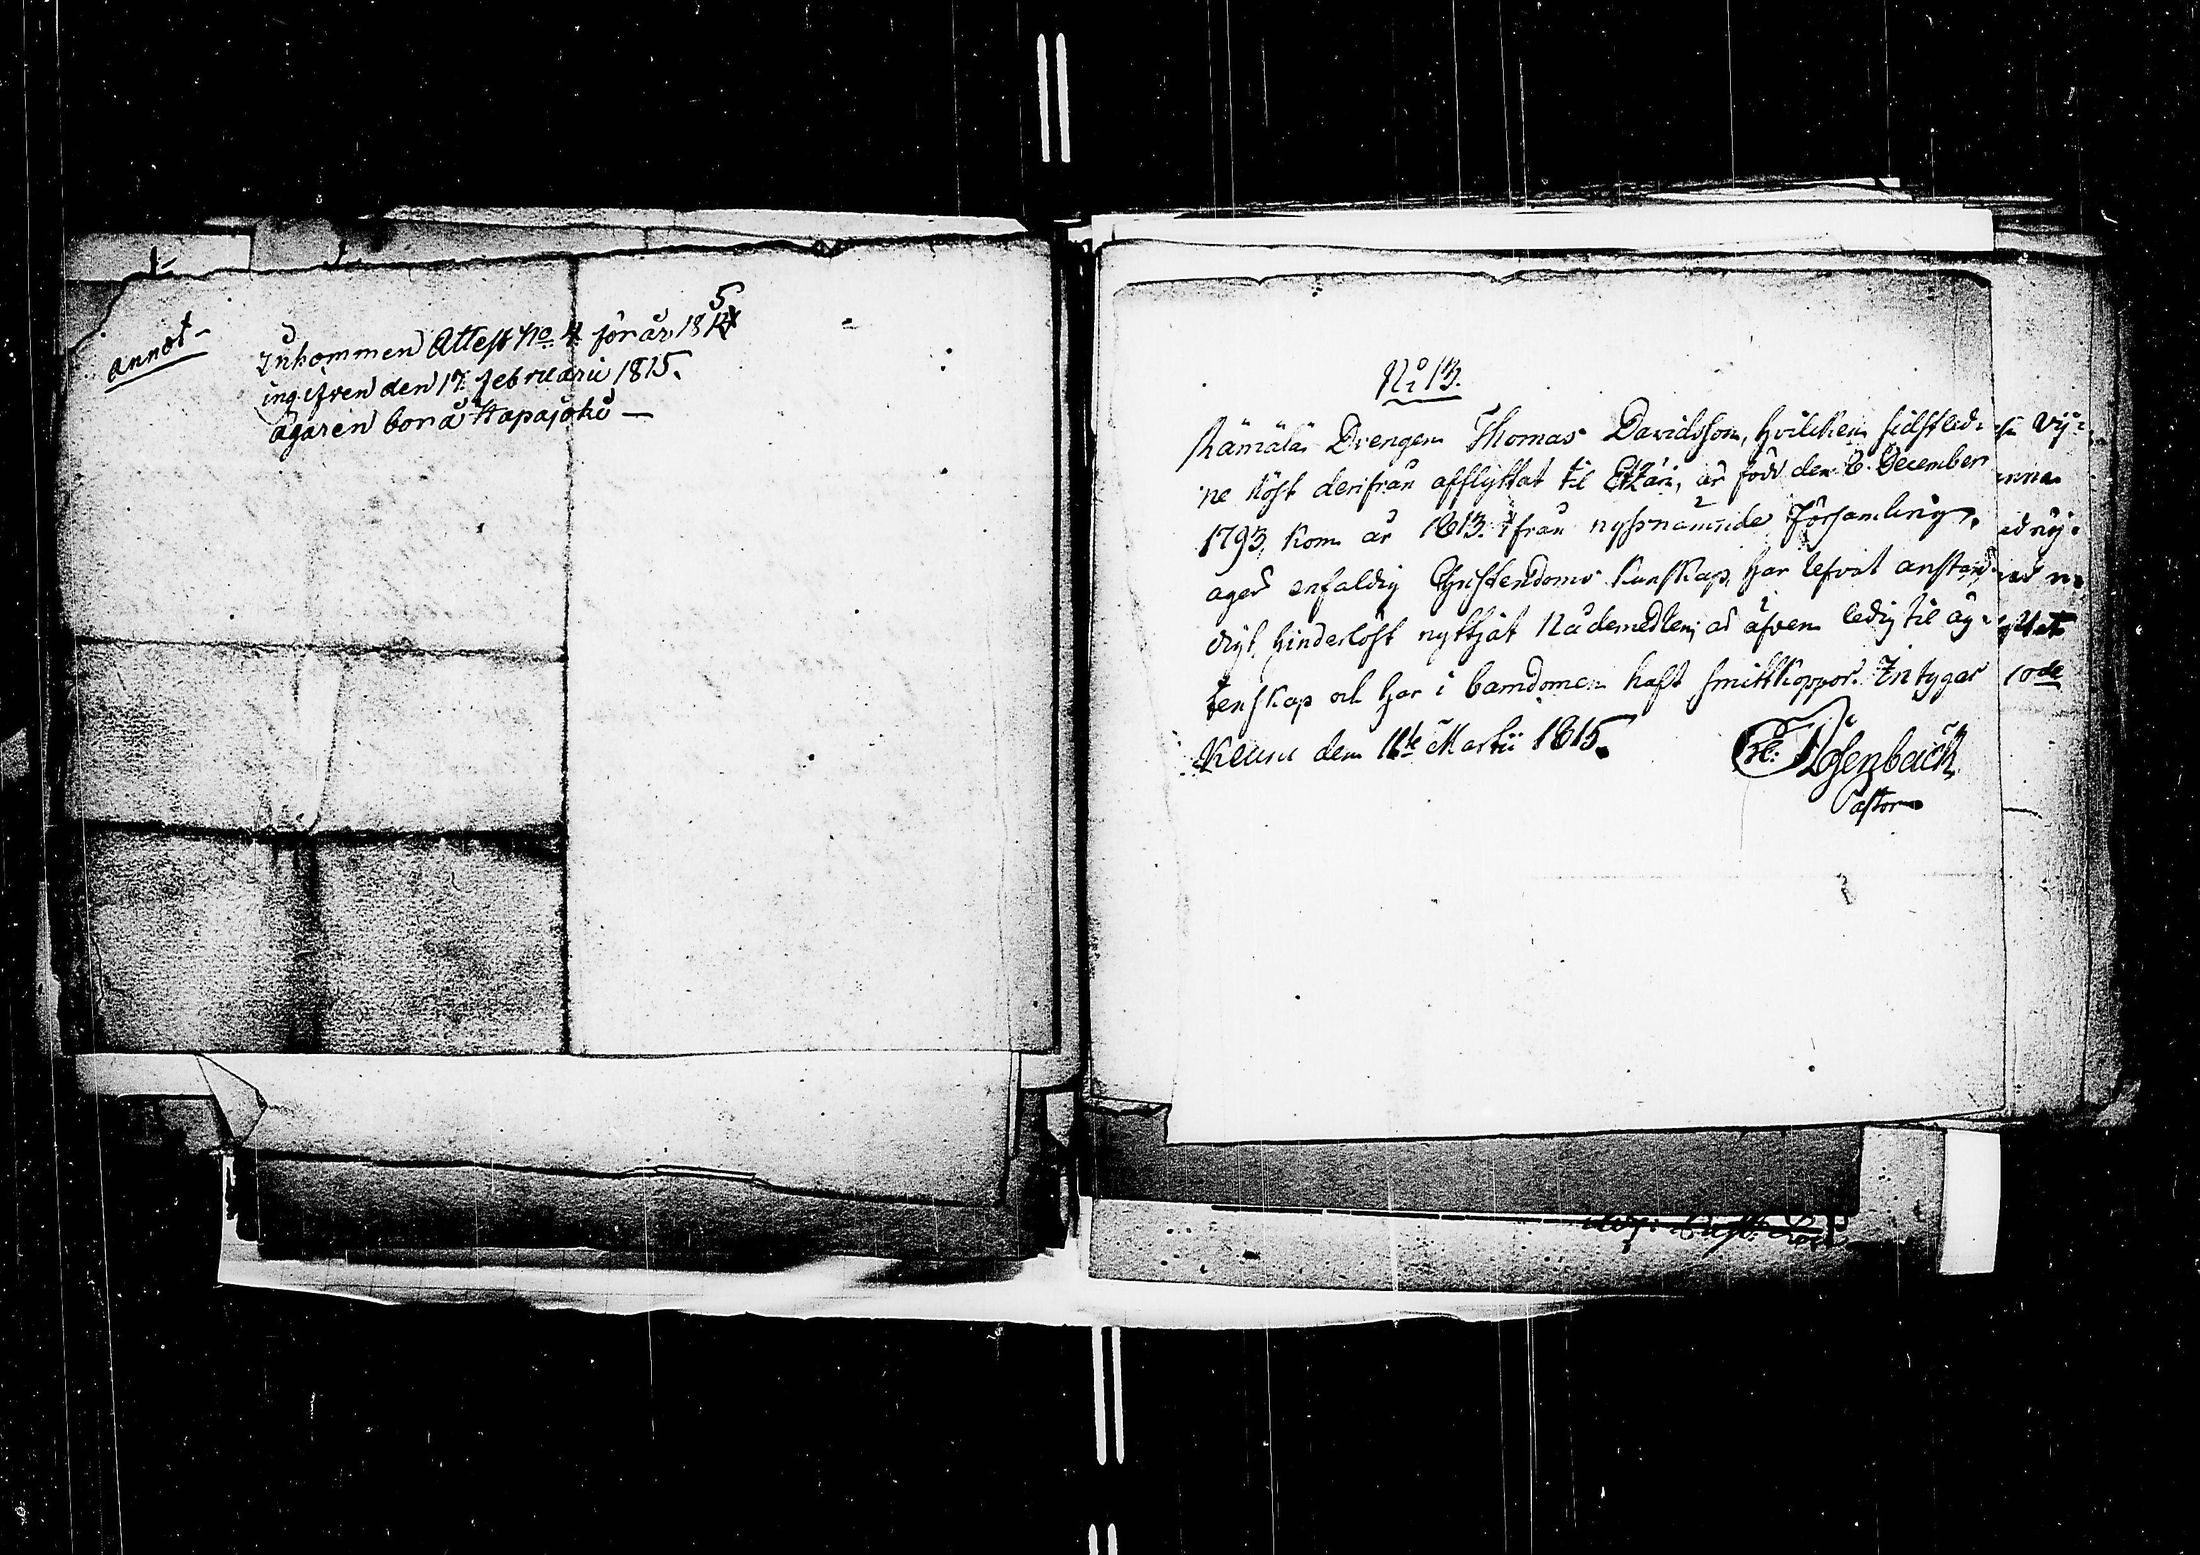 annot-
Inkommen Attest No 4 för år 1815
ingifven den 17 Februarii 1815.
ägaren bor å Hapajoki —
No 13.
Rämälä Drengen Thomas Davidsson, hvilken sidstled-
ne höst derifrån afflyttat til Etzäri, är född den 6. December
1793, kom år 1813. ifrån nyssnämnde Församling,
äger enfaldig Christendoms kunskap, har lefvat anstän-
digt, hinderlöst nyttjat Nådemedlen, är äfven ledig til äg-
tenskap och har i barndomen haft smittkoppor. Intygar
Keuru den 11te Martii 1815.
H. Rosenbäck
Pastor
vij-
nna
10de